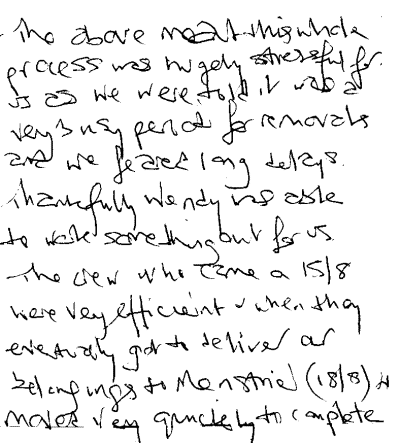 The above meant this whole
process was hugely stressful for
us as we were told it was a
very busy period for removals
and we feared long delays.
Thankfully Wendy was able
to work something out for us.
The crew who came on 15/8
were very efficient & when they
eventually got to deliver our
belongings to Menstrie (18/8)
moved very quickly to complete